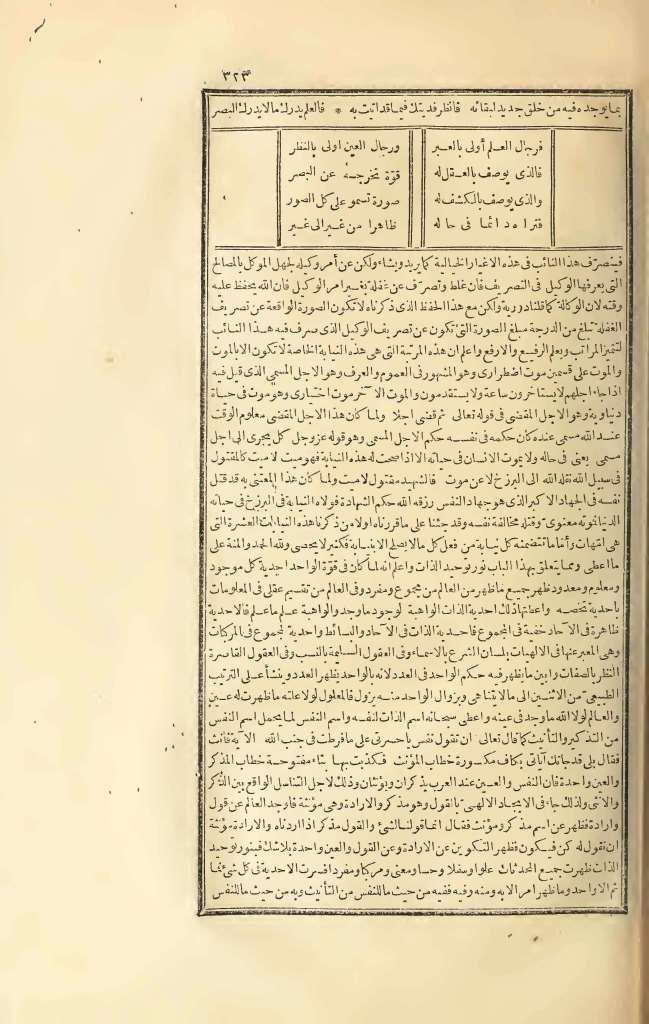 ٣٢٣
بما يوجده فيه من خلق جديد ابقائه فانظر فديتك فيما قد أتيت به * فالعلم يدرك ما لا يدرك البصر
فرجال العلم أولى بالعبر ورجال العين اولى بالنظر
فالذى يوصف بالعقل له قوّة تخرجه عن البصر
والذى يوصف بالكشف له صورة تسمو على كل الصور
فتراه دائما فى حاله ظاهرا من غير الى غير
فيتصرّف هذا النائب فى هذه الاغيار الخيالية كما يريد ويشاء ولكن عن أمر وكيله لجهل الموكل بالمصالح
التى يعرفها الوكيل فى التصريف فان غلط وتصرّف عن غفلة بغير امر الوكيل فان الله يحفظ عليه
وقته لان الوكالة كما قلنا دورية ولكن مع هذا الحفظ الذى ذكرناه لا تكون الصورة الواقعة عن تصريف
الغفلة تبلغ من الدرجة مبلغ الصورة التى تكون عن تصريف الوكيل الذى صرف فيه هذا النائب
لتتميز المراتب ويعلم الرفيع والارفع واعلم ان هذه المرتبة التى هى هذه النيابة الخاصة لا تكون الا بالموت
والموت على قسمين موت اضطرارى وهو المشهور فى العموم والعرف وهو الاجل المسمى الذى قيل فيه
اذا جاء اجلهم لا يستاخرون ساعة ولا يستقدمون والموت الآخر موت اختيارى وهو موت فى حياة
دنياوية وهو الاجل المقضى فى قوله تعالى ثم قضى اجلا ولما كان هذا الاجل المقضى معلوم الوقت
عند الله مسمى عنده كان حكمه فى نفسه حكم الاجل المسمى وهو قوله عز وجل كل يجرى الى اجل
مسمى يعنى فى حاله ولا يموت الانسان فى حياته الا اذا صحت له هذه النيابة فهو ميت لا ميت كالمقتول
فى سبيل الله نقله الله الى البرزخ لا عن موت فالشهيد مقتول لا ميت ولما كان هذا المعتنى به قد قتل
نفسه فى الجهاد الاكبر الذى هو جهاد النفس رزقه الله حكم الشهادة فولاه النيابة فى البرزخ فى حياته
الدنيا فموته معنوى وقتله مخالفة نفسه وقد جئنا على ما قررناه اولا من ذكرنا هذه النيابات العشرة التى
هى امّهات وأما ما تتضمنه كل نيابة من فعل كل ما لا يصلح الا بنيابة فكثير لا يحصى ولله الحمد والمنة على
ما اعطى ومما يتعلق بهذا الباب نور توحيد الذات واعلم انه لما كان فى قوّة الواحد احدية كل موجود
ومعلوم ومعدود ظهر جميع ما ظهر من العالم من مجموع ومفرد وفى العالم من تقسيم عقلى فى المعلومات
باحدية تخصه واعطتها ذلك احدية الذات الواهبة لوجود ما وجد والواهبة علم ما علم فالاحدية
ظاهرة فى الآحاد خفية فى المجموع فاحدية الذات فى الآحاد والبسائط واحدية المجموع فى المركبات
وهى المعبر عنها فى الالهيات بلسان الشرع بالاسماء وفى العقول السليمة بالنسب وفى العقول القاصرة
النظر بالصفات وابين ما ظهر فيه حكم الواحد فى العدد لانه بالواحد يظهر العدد وينشأ على الترتيب
الطبيعى من الاثنين الى ما لا يتناهى وبزوال الواحد منه يزول فالمعلول لولا علته ما ظهرت له عين
والعالم لولا الله ما وجد فى عينه واعطى سبحانه اسم الذات لنفسه واسم النفس لما يحمل اسم النفس
من التذكير والتأنيث كما قال تعالى ان تقول نفس يا حسرتى على ما فرطت فى جنب الله الآية فانث
فقال بلى قد جاءتك آياتى بكاف مكسورة خطاب المؤنث فكذبت بها بتاء مفتوحة خطاب المذكر
والعين واحدة فان النفس والعين عند العرب يذكران ويؤنثان وذلك لاجل التناسل الواقع بين الذكر
والانثى ولذلك جاء فى الايجاد الالهى بالقول وهو مذكر والارادة وهى مؤنثة فاوجد العالم عن قول
وارادة فظهر عن اسم مذكر ومؤنث فقال انما قولنا لشئ والقول مذكر اذا اردناه والارادة مؤنثة
ان نقول له كن فيكون فظهر التكوين عن الارادة وعن القول والعين واحدة بلا شك فبنور توحيد
الذات ظهرت جميع المحدثات علوا وسفلا وحسا ومعنى ومركبا ومفردا فسرت الاحدية فى كل شئ فما
ثم الا واحد وما ظهر امر الا به ومنه وفيه ففيه من حيث ما للنفس من التأنيث وبه من حيث ما للنفس